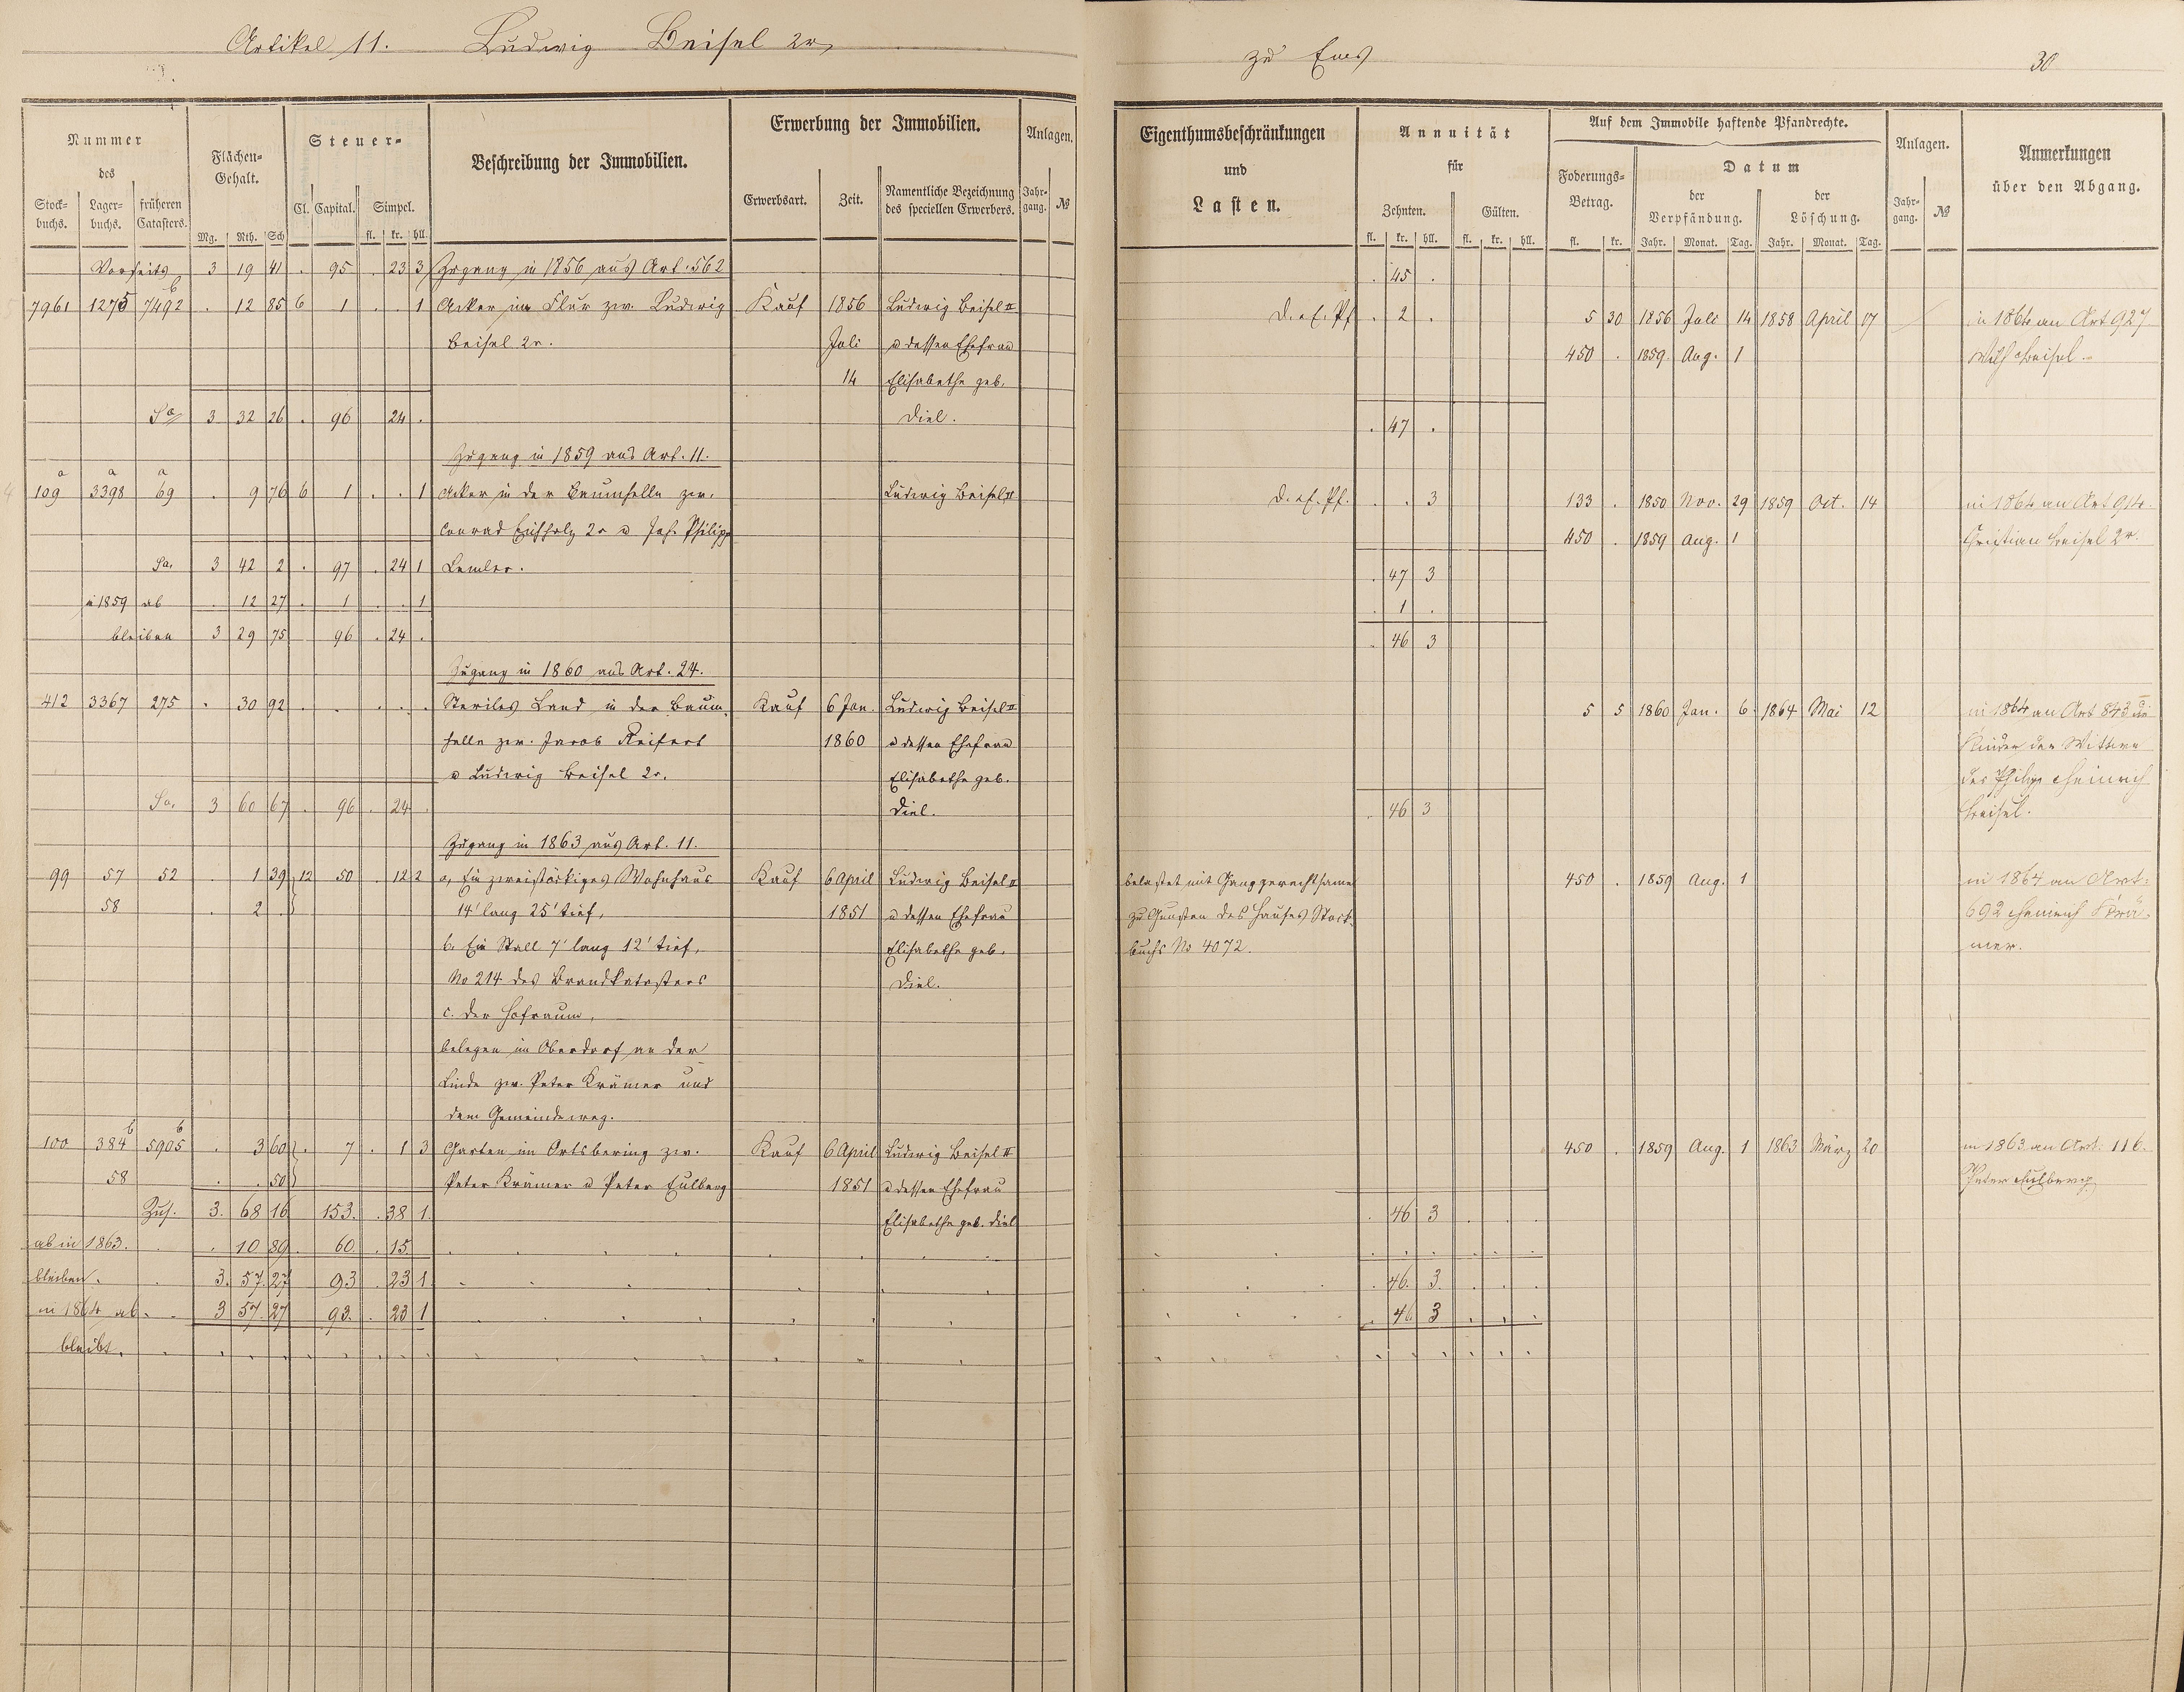 Artikel 11. Ludwig Beisel 2r
zu Ems 30
Nummer des
Stock-buchs. Lager-buchs. früheren Catasters.
Flächen-Gehalt.
Mg. Rth. Sch
Steuer-
Cl. Capital. Simpel.
fl. kr. hll.
Beschreibung der Immobilien.
Erwerbung der Immobilien.
Erwerbsart. Zeit. Namentliche Bezeichnung des speciellen Erwerbers.
Anlagen.
Jahr-gang. №
Eigenthumsbeschränkungen und Lasten.
Annuität für
Zehnten. Gülten.
fl. kr. hll. fl. kr. hll.
Auf dem Immobile haftende Pfandrechte.
Foderungs-Betrag.
fl. kr.
Datum
der Verpfändung. der Löschung.
Jahr. Monat. Tag. Jahr. Monat. Tag.
Anlagen.
Jahr-gang. №
Anmerkungen über den Abgang.
Vorseite 3 19 41 . 95 . 23 3 Zugang in 1856 aus Art. 562 . 45 .
7961 1275 7492 b . 12 85 6 1 . . 1 Acker im Flur zw. Ludwig Kauf 1856 Ludwig Beisel II . 2 . 5 30 1856 Juli 14 1858 April 17 in 1864 an Art 927
Beisel 2r. Juli u dessen Ehefrau 450 . 1859. Aug. 1 Wilh Beisel.
14 Elisabethe geb.
Sa 3 32 26 . 96 24 . Diel. . 47 .
Zugang in 1859 aus Art. 11.
109 a 3398 a 69 a . 9 76 6 1 . . 1 Acker in der Baumhelle zw. Ludwig Beisel II . . 3 133 . 1850 Nov. 29 1859 Oct. 14 in 1864 an Art 914.
Conrad Eichholz 2r u Joh. Philipp 450 . 1859 Aug. 1 Christian Beisel 2r.
Sa. 3 42 2 . 97 . 24 1 Lemler. . 47 3
in 1859 ab . 12 27 . 1 . . 1 . 1 .
bleiben 3 29 75 96 . 24 . . 46 3
Zugang in 1860 aus Art. 24.
412 3367 275 . 30 92 . . . . . Steriles Land in der Baum- Kauf 6 Jan. Ludwig Beisel II 5 5 1860 Jan. 6 1864 Mai 12 in 1864 an Art 843
helle zw. Jacob Reifert 1860 u dessen Ehefrau Kinder der Wittwe
u Ludwig Beisel 2r. Elisabethe geb. des Philipp Heinrich
Sa. 3 60 67 . 96 . 24 . Diel. . 46 3 Beisel.
Zugang in 1863 aus Art. 11.
99 57 52 . 1 39 12 50 . 12 2 a, Ein zweistöckiges Wohnhaus Kauf 6 April Ludwig Beisel II belastet mit Ganggerechtsame 450 . 1859 Aug. 1 in 1864 an Art.
58 . 2 . 14' lang 25' tief, 1851 u dessen Ehefrau zu Gunsten des Hauses Stock- 692 Heinrich Krä-
b. Ein Stall 7' lang 12' tief, Elisabethe geb. buchs No 4072. mer.
No 214 des Brandkatasters Diel.
c. der Hofraum,
belegen im Oberdorf an der
Linde zw. Peter Krämer und
dem Gemeindeweg.
100 384 b 5905 b . 3 60 . 7 . 1 3 Garten im Ortsbering zw. Kauf 6 April Ludwig Beisel II 450 . 1859 Aug. 1 1863 März 20 in 1863 an Art. 116.
58 . . 50 Peter Krämer u Peter Eulberg 1851 u dessen Ehefrau Peter Eulberg
Zus. 3. 68 16 153. . 38 1. Elisabethe geb. Diel . 46 3 . . .
ab in 1863. . . 10 89. 60. . 15.
bleiben. . 3. 57. 27 93 . 23 1. . 46. 3. . . .
in 1864 ab. . 3 57. 27 93. . 23 1 . 46 3 . . .
bleibt.